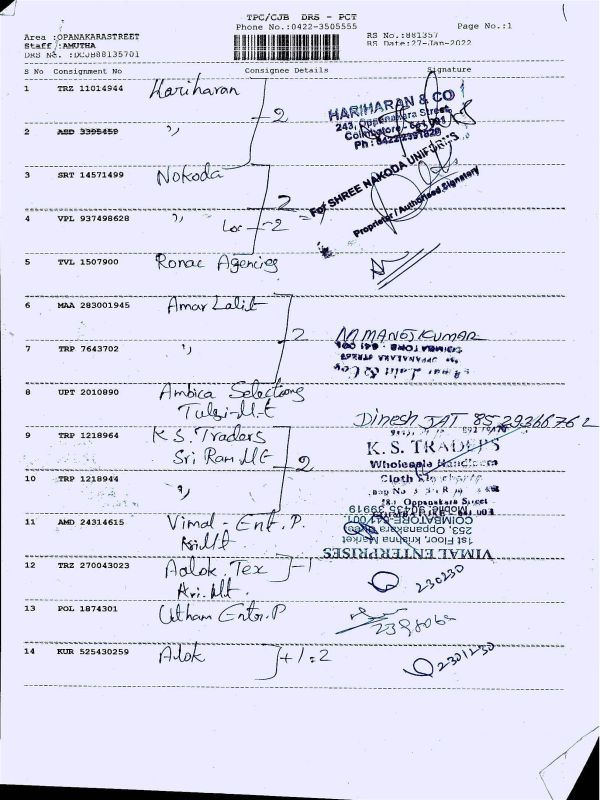 TPC/CJB DRS - PCT
Phone No.:0422-3505555
Page No.:1
Area :OPANAKARASTREET
RS No.:881357
Staff :AMUTHA
RS Date:27-Jan-2022
DRS No. :DCJB88135701
S No Consignment No Consignee Details Signature
1 TRZ 11014944 Hariharan
2
HARIHARAN & CO
243, Oppanakara Street,
Coimbatore - 641 001
Ph : 0422-2391820
2 ASD 3395459 "
3 SRT 14571499 Nokoda
2
For SHREE NAKODA UNIFORMS
Proprietor / Authorised Signatory
4 VPL 937498628 "
Loc - 2
5 TVL 1507900 Ronac Agencies
6 MAA 283001945 Amar Lalit
2
M MANOJ KUMAR
7 TRP 7643702 "
COIMBATORE - 641 001
OPPANAKARA STREET
Amar Lalit & Coy
8 UPT 2010890 Ambica Selections
Tulsi Mt
Dinesh JAT
9 TRP 1218964 K S. Traders
Sri Ram Mt
2
K. S. TRADERS
Wholesale
Cloth
10 TRP 1218944 "
Oppanakara Street
11 AMD 24314615 Vimal - Ent. P.
Mobile: 90435 39819
COIMBATORE-641 001
253, Oppanakara Street
1st Floor, Krishna Market
VIMAL ENTERPRISES
12 TRZ 270043023 Aalok. Tex
1
Hri. Mt.
230230
13 POL 1874301 Utham Enter. P
14 KUR 525430259 Alok
+1 = 2
2301230